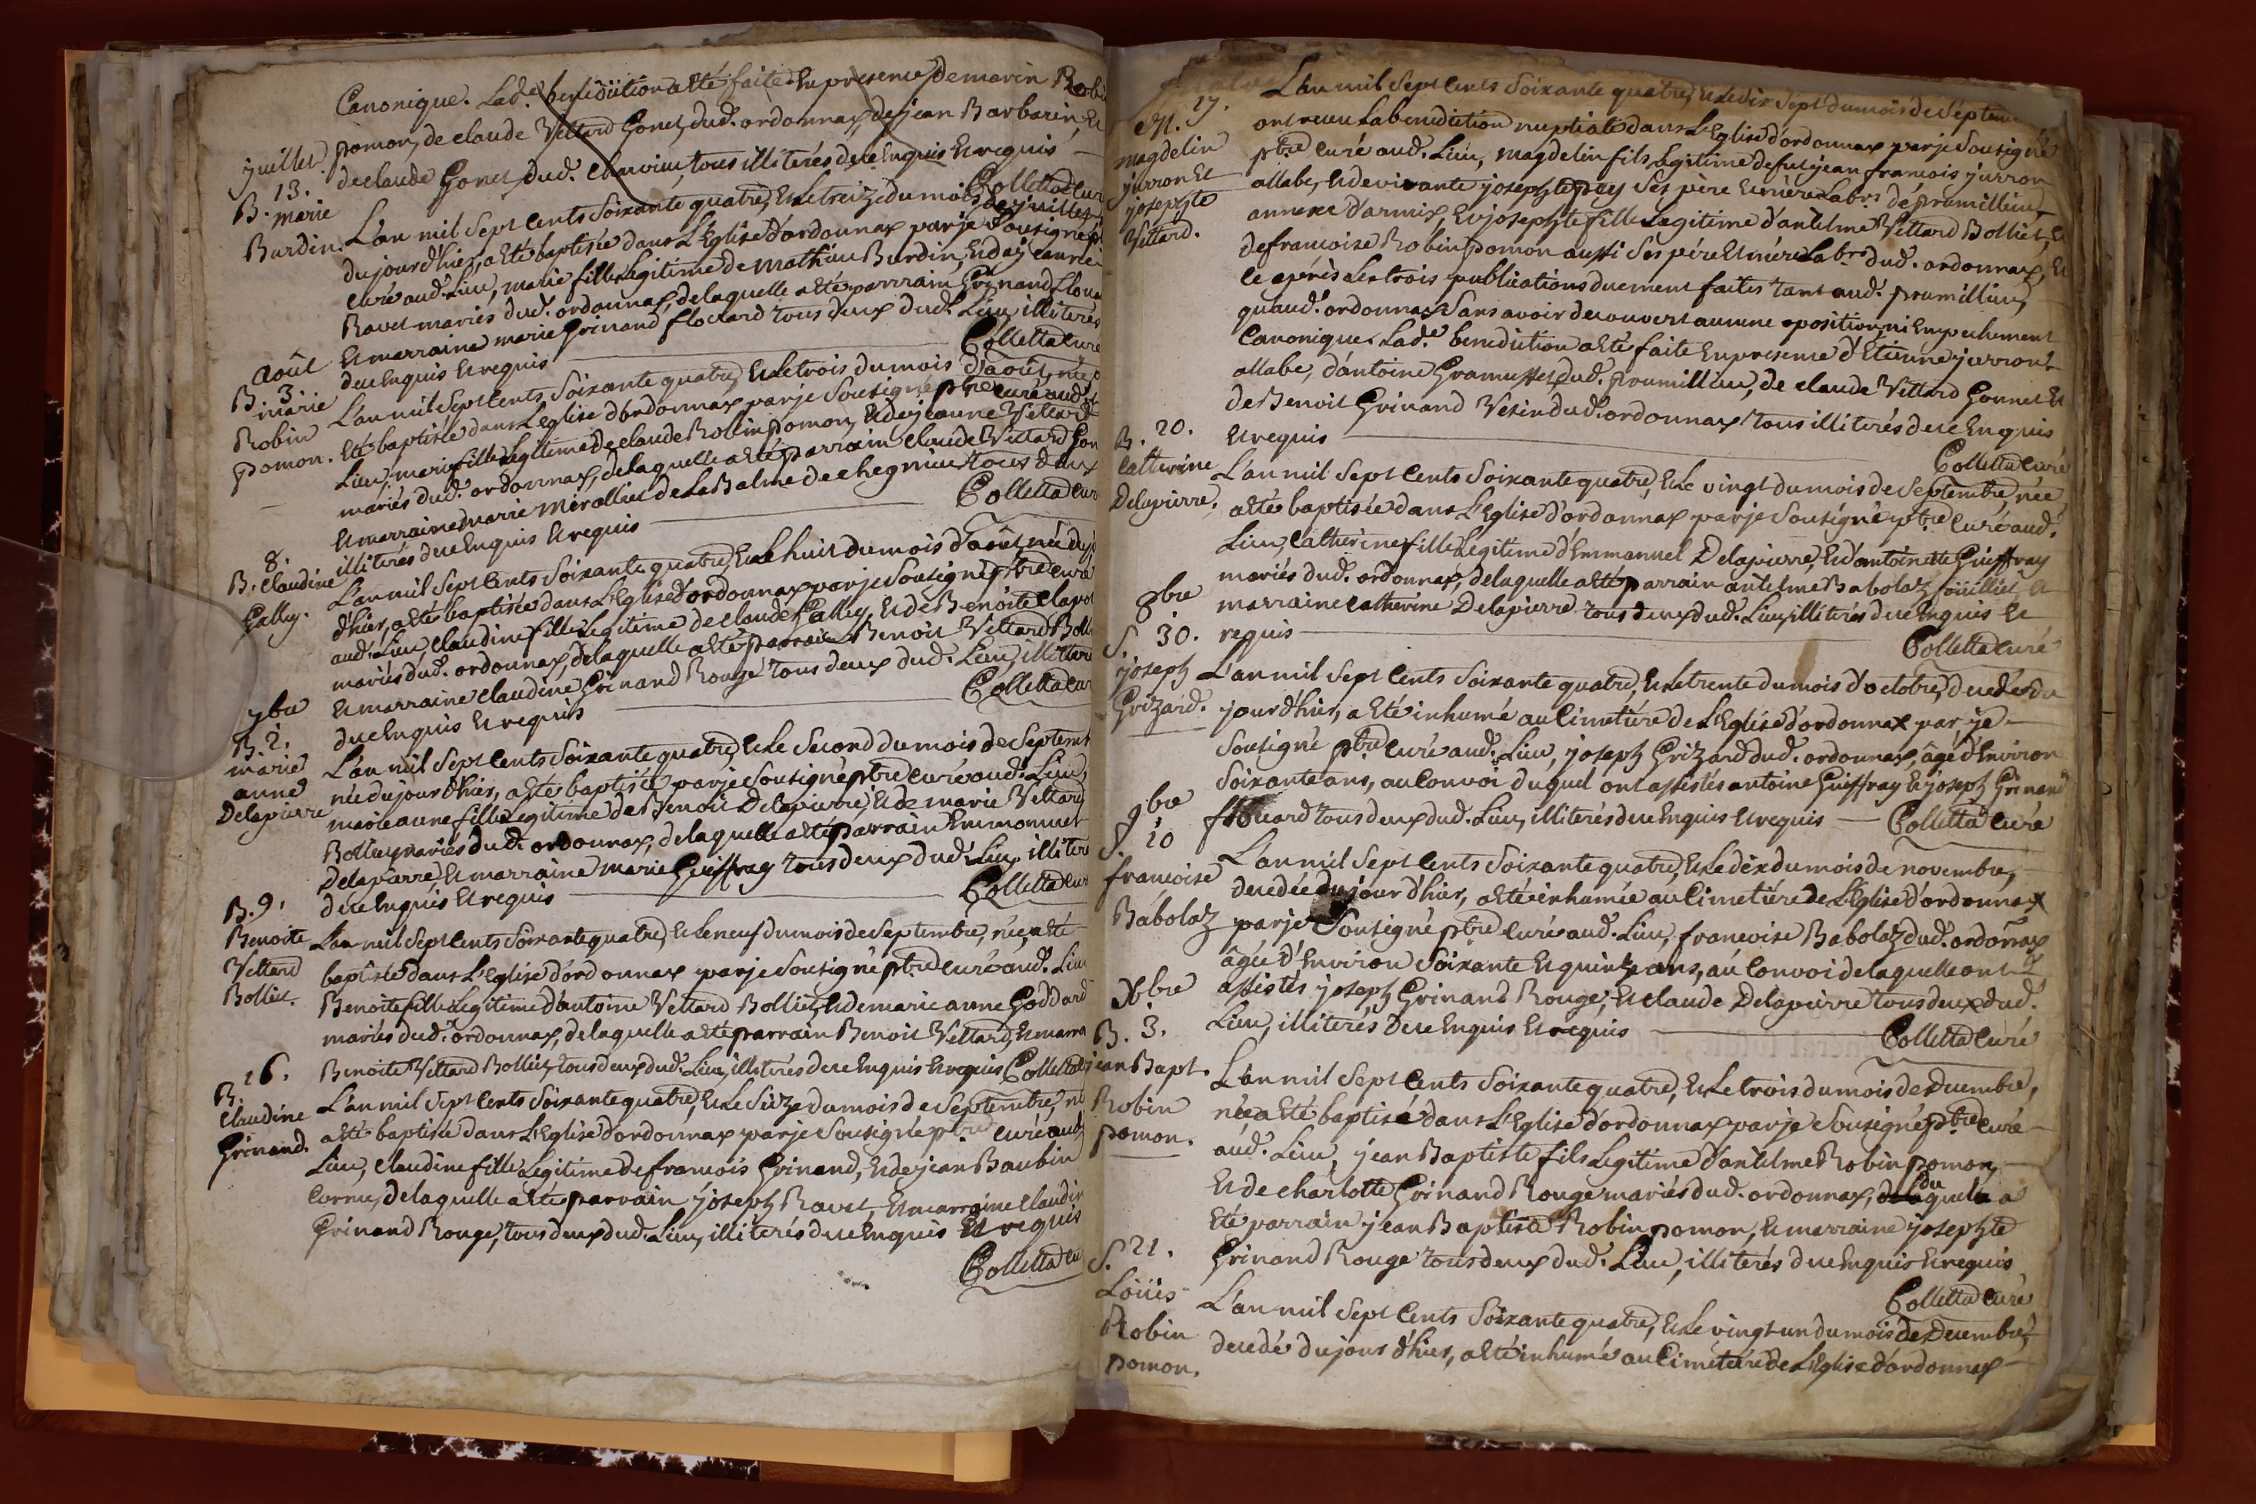 Canonique. Lad.e benidition a Eté faite En presence de marin Robi
pomon, de claude Vettard Gonet, dud. ordonnax, de jean Barbarin, Et
de claude Gonet, dud. tous illiterés de ce Enquis Et requis
Colletta Cur
juillet
B. 13.
marie
Burdin.
L'an mil Sept Cents Soixante quatre, Et Le treize du mois de juillet,
du jour d'hier, a Eté baptisée dans L'Eglise d'ordonnax par je Sousigné
Curé aud. Lieu, marie fille Legitime de mathieu Burdin, Et de jeanne
Ravet mariés dud. ordonnax, de laquelle a Eté parrain Grinand
Et marraine marie Grinand flocard tous deux dud. Lieu illiterés
de ce Enquis Et requis
Colletta Curé
août
B. 3.
marie
Robin
pomon.
L'an mil Sept Cents Soixante quatre, Et Le trois du mois d'août, née
Eté baptisée dans L'eglise d'ordonnax par je Sousigné ptre Curé aud.
Lieu, marie fille Legitime de claude Robin pomon, Et de jeanne Vettard
mariés dud. ordonnax, de laquelle a Eté parrain claude Vettard Gon
Et marraine marie de La Balme de tous deux
illiterés de ce Enquis Et requis
Colletta Cur
8.
B. claudine
Gallay.
L'an mil Sept Cents Soixante quatre, Et Le huit du mois d'août, née du jo
d'hier, a Eté baptisée dans L'Eglise d'ordonnax par je Sousigné ptre Curé
aud. Lieu, claudine fille Legitime de claude Gallay, Et de Benoite
mariés dud. ordonnax, de laquelle a Eté parrain Benoit Vettard Bolli
Et marraine claudine Grinand Rouge tous deux dud. Lieu, illiteré
de ce Enquis Et requis
Colletta Cur
7bre
B. 2.
marie
anne
Delapierre
L'an mil Sept Cents Soixante quatre, Et Le Second du mois de Septemb
née du jour d'hier, a Eté baptisée par je Sousigné ptre Curé aud. Lieu,
marie anne fille Legitime de Benoit Delapierre, Et de marie Vettard
Bolliet mariés dud. ordonnax, de laquelle a Eté parrain Emmonuel
Delapierre, Et marraine marie Guiffray tous deux dud. Lieu illiteré
de ce Enquis Et requis
Colletta Cur
B. 9.
Benoite
Vettard
Bolliet.
L'an mil Sept Cents Soixante quatre, Et Le neuf du mois de Septembre, née, a Eté
baptisée dans L'Eglise d'ordonnax par je Sousigné ptre Curé aud. Lieu
Benoite fille Legitime d'antoine Vettard Bolliet, Et de marie anne Goddard
mariés dud. ordonnax, de laquelle a Eté parrain Benoit Vettard, Et marra
Benoite Vettard Bolliet, tous deux dud. Lieu, illiterés de ce Enquis Et requis Colletta
B. 16.
claudine
Grinand.
L'an mil Sept Cents Soixante quatre, Et Le Sieze du mois de Septembre, né
a Eté baptisée dans L'Eglise d'ordonnax par je Sousigné ptre Curé aud
Lieu, claudine fille Legitime de francois Grinand, Et de jean Baubin
Cornu, de laquelle a Eté parrain joseph Ravet, Et marraine claudin
Grinand Rouge, tous deux dud. Lieu, illiterés de ce Enquis Et requis
Colletta Cu
M. 17.
magdelin
jurron Et
josephte
Vettard.
L'an mil Sept Cents Soixante quatre, Et Le dix Sept du mois de Septem
ont receu La benidition nuptiale dans L'Eglise d'ordonnax par je Sousigné
ptre Curé aud. Lieu, magdelin fils Legitime de fut jean francois jurron
allabe, Et de vivante josephte Ses père Et mère Lab.rs de prumillieu,
annexe d'armix, Et josephte fille Legitime d'antelme Vettard Bolliet, Et
de francoise Robin pomon aussi Ses père Et mère Lab.rs dud. ordonnax, Et
ce après Les trois publications duement faites tant aud. prumillieu,
qu'aud. ordonnax Sans avoir decouvert aucune oposition, ni Empechement
Canonique. Lad.e benidition a Eté faite En presence d'Etienne jurron
allabe, d'antoine Gramusset dud. prumillieu, de claude Vettard Gonnet Et
de Benoit Grinand Vezin dud. ordonnax tous illiterés de ce Enquis
Et requis
Colletta Curé
B. 20.
Catherine
Delapierre.
L'an mil Sept Cents Soixante quatre, Et Le vingt du mois de Septembre, née
a Eté baptisée dans L'Eglise d'ordonnax par je Sousigné ptre Curé aud.
Lieu, Catherine fille Legitime d'Emmanuel Delapierre, Et d'antoinette Guiffray
mariés dud. ordonnax, de laquelle a Eté parrain antelme Babolaz foüilliet, Et
marraine Catherine Delapierre tous deux dud. Lieu, illiterés de ce Enquis Et
requis
Colletta Curé
8bre
S. 30.
joseph
Grizard.
L'an mil Sept Cents Soixante quatre, Et Le trente du mois d'octobre, decedé du
jour d'hier, a Eté inhumé au Cimetière de L'Eglise d'ordonnax par je
Sousigné ptre Curé aud. Lieu, joseph Grizard dud. ordonnax, âgé d'Environ
Soixante ans, au Convoi duquel ont assistés antoine Guiffray Et joseph Grinand
flocard tous deux dud. Lieu, illiterés de ce Enquis Et requis Colletta Curé
9bre
S. 10
francoise
Babolaz
L'an mil Sept Cents Soixante quatre, Et Le dix du mois de novembre,
decedée du jour d'hier, a Eté inhumée au Cimetière de L'Eglise d'ordonnax
par je Sousigné ptre Curé aud. Lieu, francoise Babolaz dud. ordonnax
âgée d'Environ Soixante Et quinze ans, au Convoi de laquelle ont
assistés joseph Grinand Rouge, Et claude Delapierre tous deux dud.
Lieu, illiterés de ce Enquis Et requis
Colletta Curé
Xbre
B. 3.
jean Bapt.
Robin
pomon.
L'an mil Sept Cents Soixante quatre, Et Le trois du mois de decembre,
née a Eté baptisé dans L'Eglise d'ordonnax par je Sousigné ptre Curé
aud. Lieu, jean Baptiste fils Legitime d'antelme Robin pomon,
Et de charlotte Grinand Rouge mariés dud. ordonnax, duquel a
Eté parrain jean Baptiste Robin pomon, Et marraine josephte
Grinand Rouge tous deux dud. Lieu, illiterés de ce Enquis Et requis
Colletta Curé
S. 21.
Loüis
Robin
pomon.
L'an mil Sept Cents Soixante quatre, Et Le vingt un du mois de Decembre,
decedé du jour d'hier, a Eté inhumé au Cimetière de L'Eglise d'ordonnax